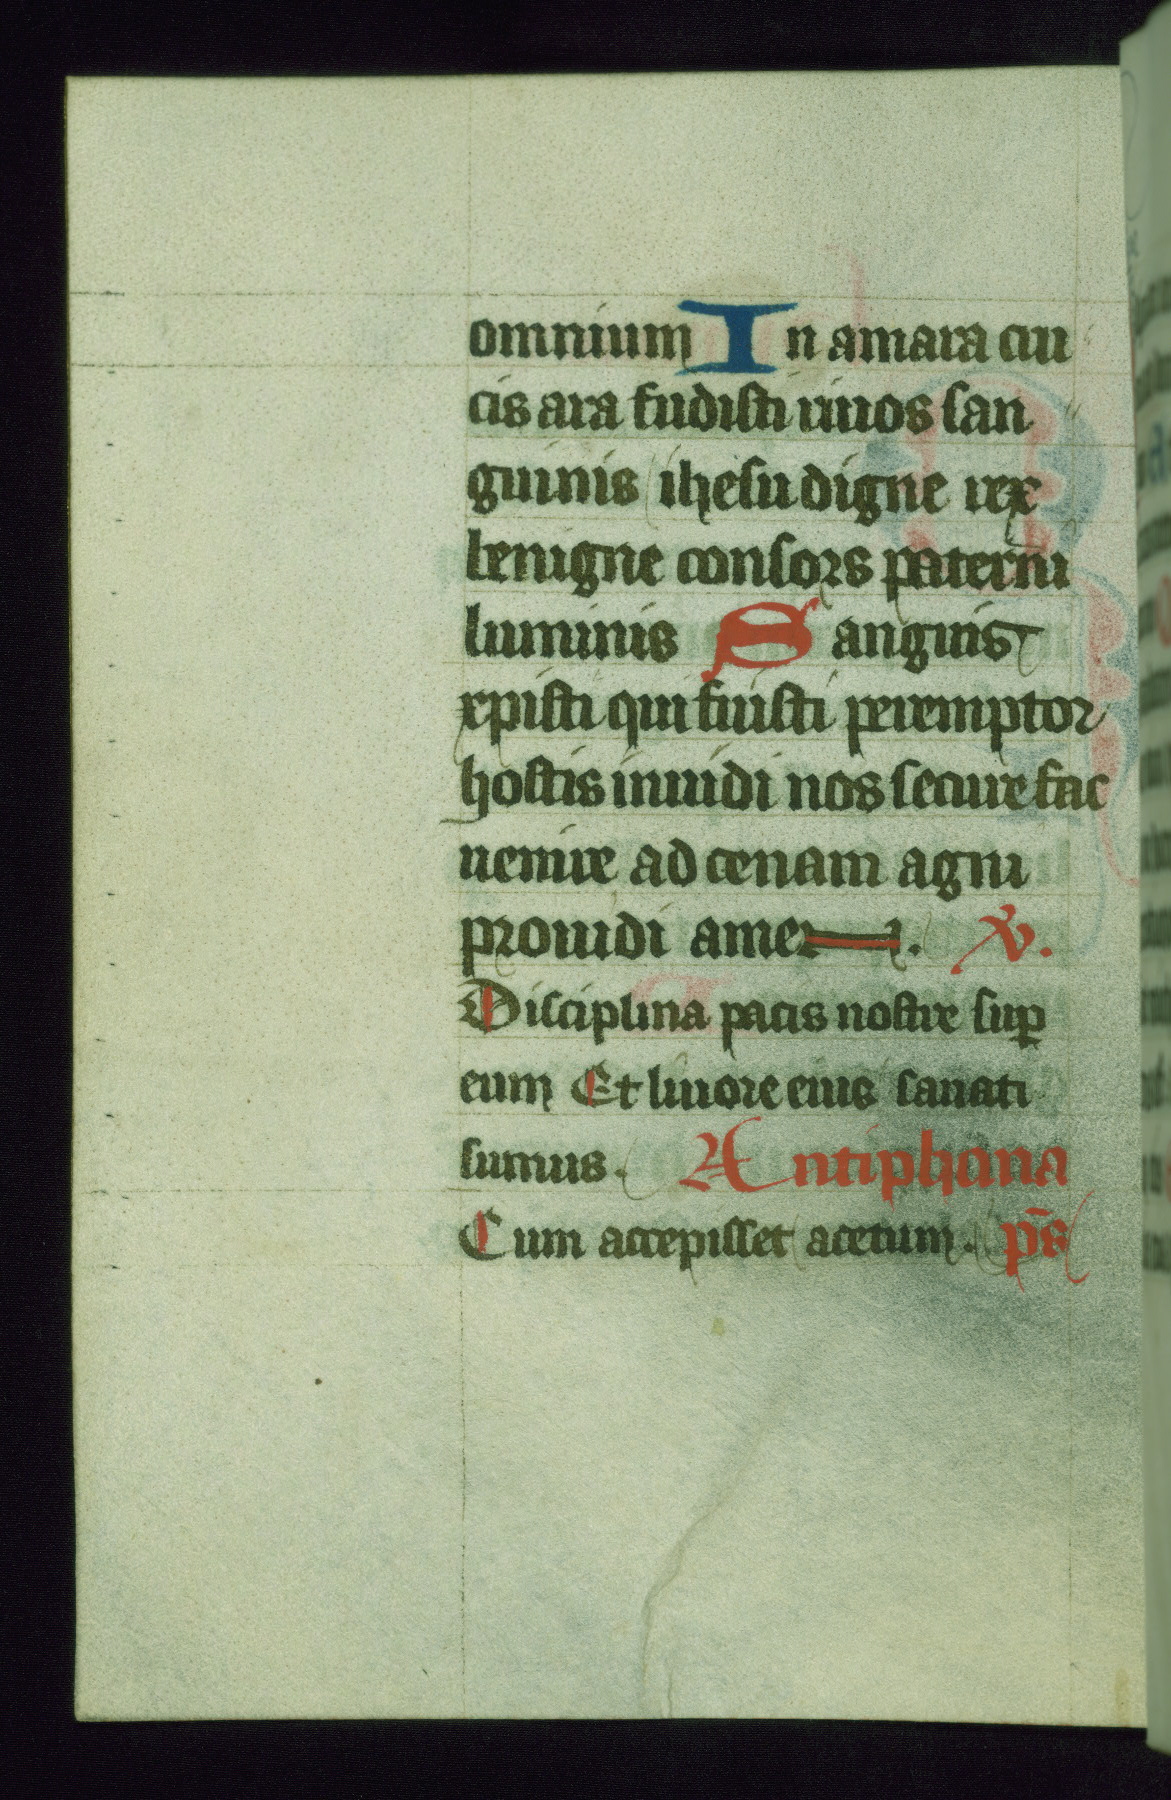 omnium In amara cru
cis ara fudisti riuos san
guinis ihesu digne rex
benigne consors paterni
luminis Sanguis
xpisti qui fuisti peremptor
hostis inuidi nos secure fac
uenire ad cenam agni
prouidi amen. V.
Disciplina pacis nostre sup
eum Et liuore eius sanati
sumus. Antiphona
Cum accepisset acetum. ps